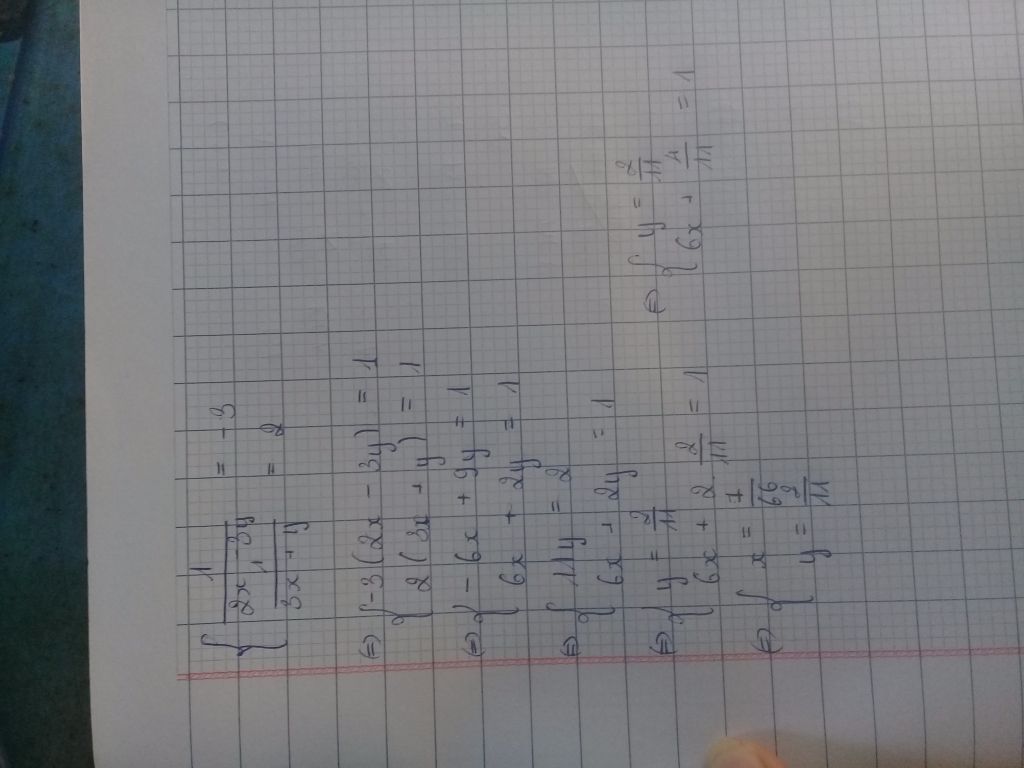 { 1/(2x - 3y) = -3
1/(3x + y) = 2
⇔ { -3(2x - 3y) = 1
2(3x + y) = 1
⇔ { -6x + 9y = 1
6x + 2y = 1
⇔ { 11y = 2
6x + 2y = 1
⇔ { y = 2/11
6x + 2 2/11 = 1
⇔ { y = 2/11
6x + 4/11 = 1
⇔ { x = 7/66
y = 2/11